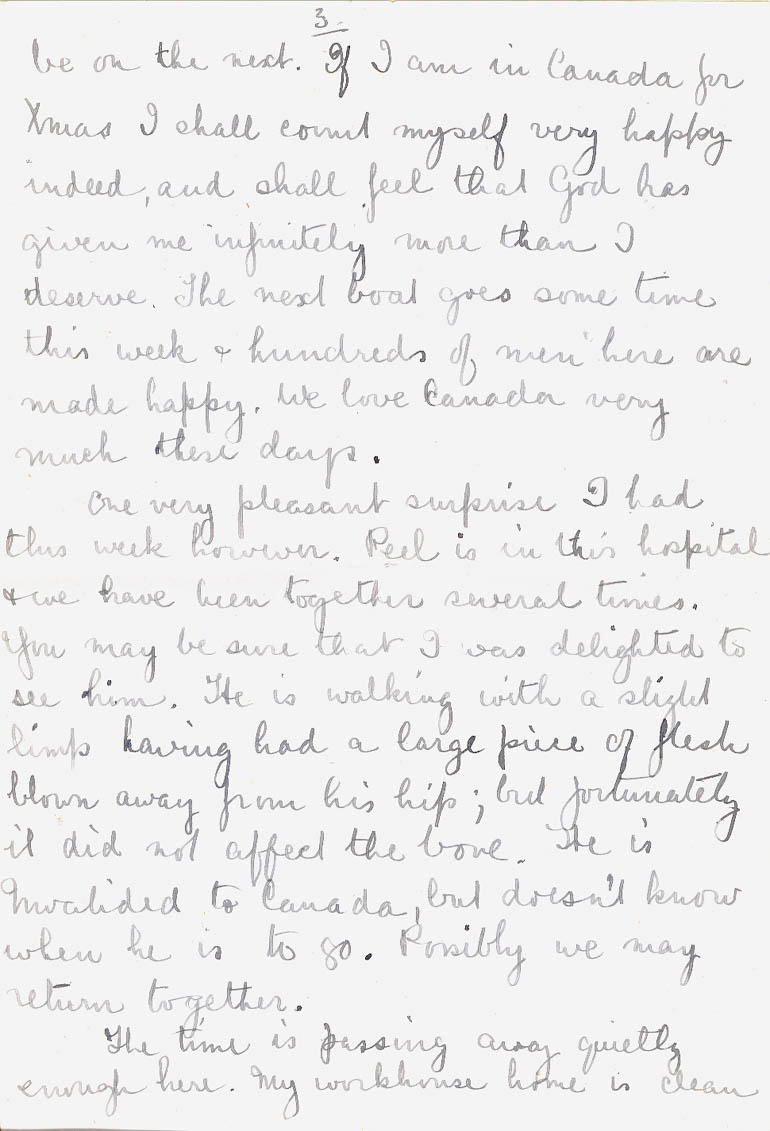 3.
be on the next. If I am in Canada for
Xmas I shall count myself very happy
indeed, and shall feel that God has
given me infinitely more than I
deserve. The next boat goes some time
this week & hundreds of men here are
made happy. We love Canada very
much these days.
One very pleasant surprise I had
this week however. Peel is in this hospital
& we have been together several times.
You may be sure that I was delighted to
see him. He is walking with a slight
limp having had a large piece of flesh
blown away from his hip; but fortunately
it did not affect the bone. He is
Invalided to Canada, but doesn't know
when he is to go. Possibly we may
return together.
The time is passing away quietly
enough here. My workhouse home is clean